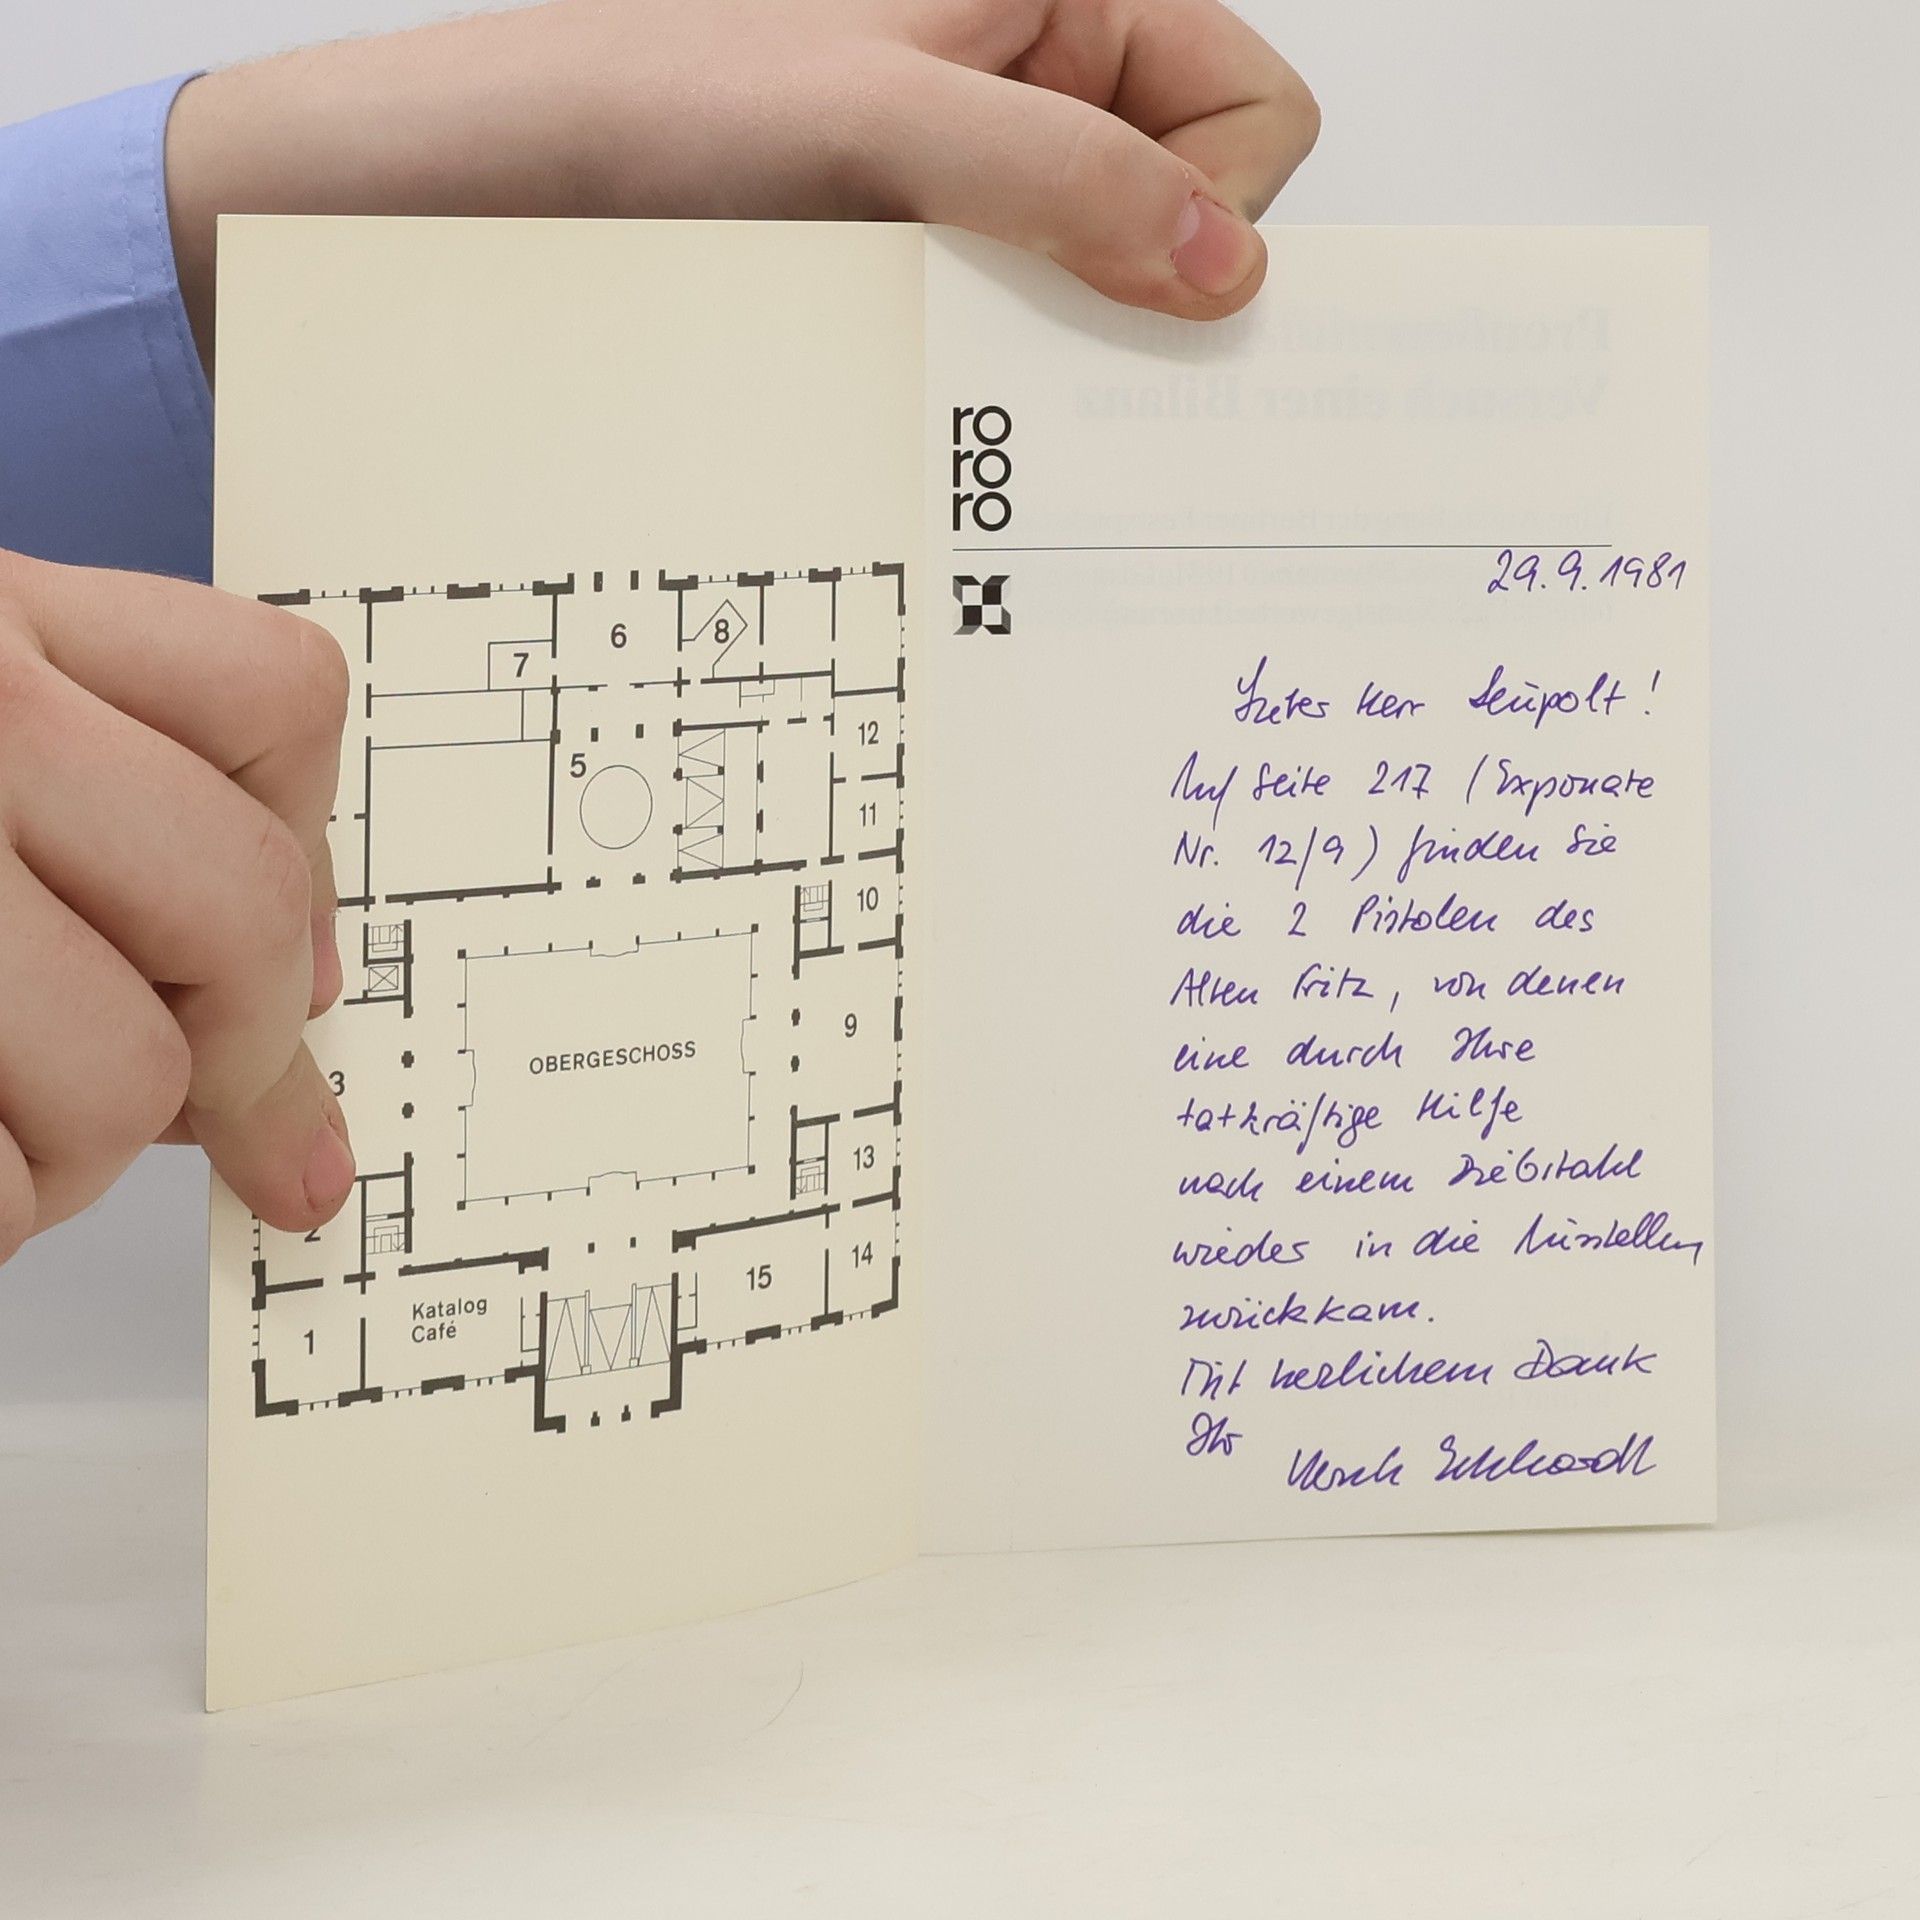 6
8
7
12
5
11
10
9
OBERGESCHOSS
3
13
2
14
15
Katalog
Café
1
ro
ro
ro
29.9.1981
Lieber Herr Leupolt!
Auf Seite 217 (Exponate
Nr. 12/9) finden Sie
die 2 Pistolen des
Alten Fritz, von denen
eine durch Ihre
tatkräftige Hilfe
nach einem Diebstahl
wieder in die Ausstellung
zurückkam.
Mit herzlichem Dank
Ihr
Ulrich Eckhardt
Versuch einer Bilanz